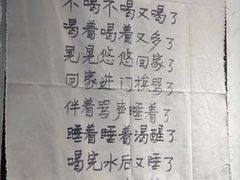 不喝不喝又喝了
喝着喝着又多了
晃晃悠悠回家了
回家进门挨骂了
伴着骂声睡着了
睡着睡着渴醒了
喝完水后又睡了